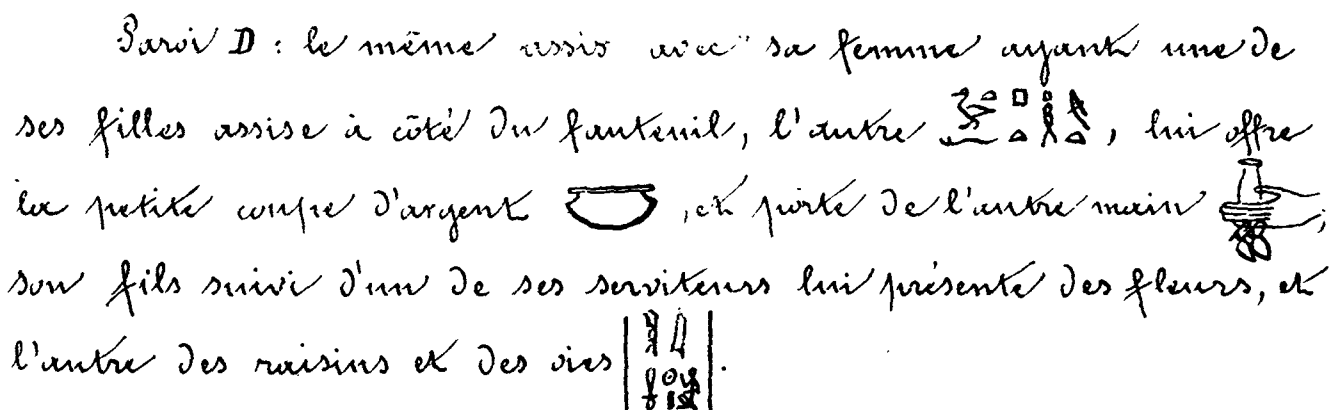 Paroi D : le même assis avec sa femme ayant une de
ses filles assise à côté du fauteuil, l'autre , lui offre
la petite coupe d'argent , et porte de l'autre main ;
son fils suivi d'un de ses serviteurs lui présente des fleurs, et
l'autre des raisins et des oies .